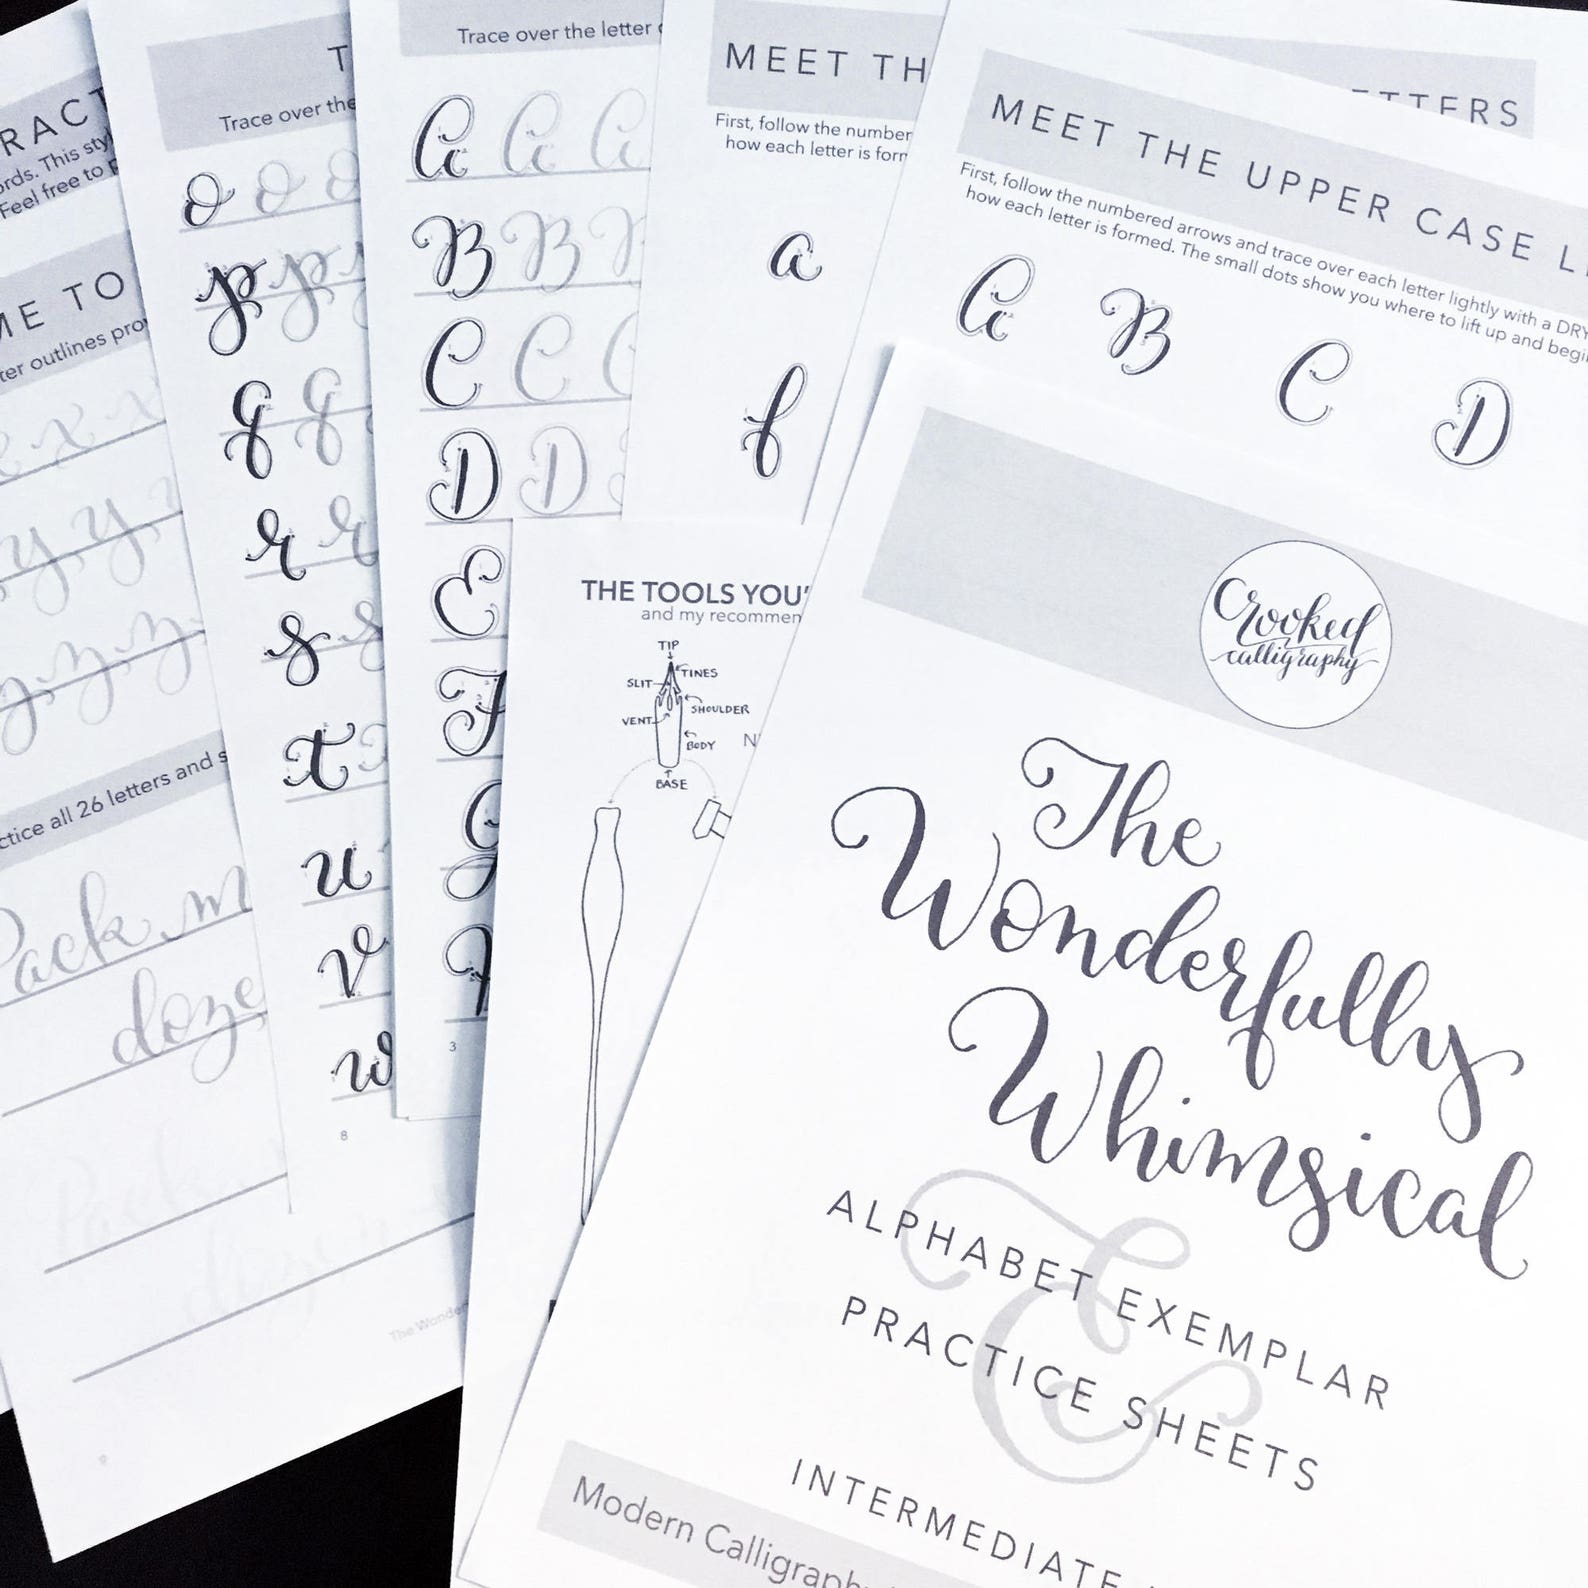 Crooked
calligraphy
The
Wonderfully
Whimsical
&
ALPHABET EXEMPLAR
PRACTICE SHEETS
INTERMEDIATE
Modern Calligraphy
ETTERS
MEET THE UPPER CASE L
First, follow the numbered arrows and trace over each letter lightly with a DRY
how each letter is formed. The small dots show you where to lift up and begi
A B C D
MEET TH
First, follow the number
how each letter is form
a
f
THE TOOLS YOU'
and my recommen
TIP
TINES
SLIT
SHOULDER
VENT
BODY
N
BASE
Trace over the letter
A A A
B B B
C C C
D D
E
F
G
H
3
T
Trace over the
o o o
p p p
q q
r r
s s
t t
u
v
w
8
RACT
ords. This sty
Feel free to p
ME TO
ter outlines pro
x x x
y y y
z z z
ctice all 26 letters and s
Pack m
doze
Pack
doze
The Wonder
9